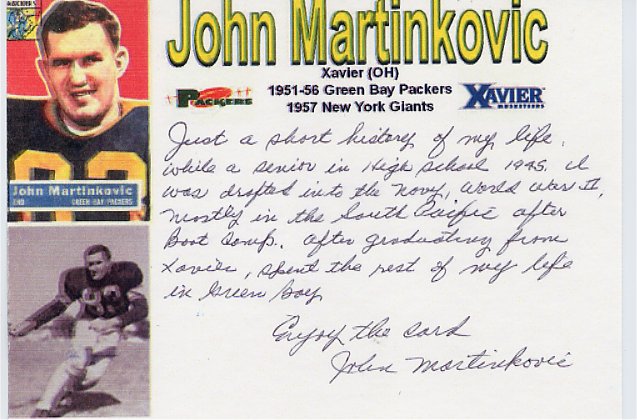 John Martinkovic
Xavier (OH)
1951-56 Green Bay Packers
1957 New York Giants
PACKERS
XAVIER
MUSKETEERS
John Martinkovic
END GREEN BAY PACKERS
Just a short history of my life.
while a senior in High school 1945, I
was drafted into the Navy, World War II,
mostly in the South Pacific after
Boot Camp. After graduating from
Xavier, spent the rest of my life
in Green Bay
Enjoy the card
John Martinkovic